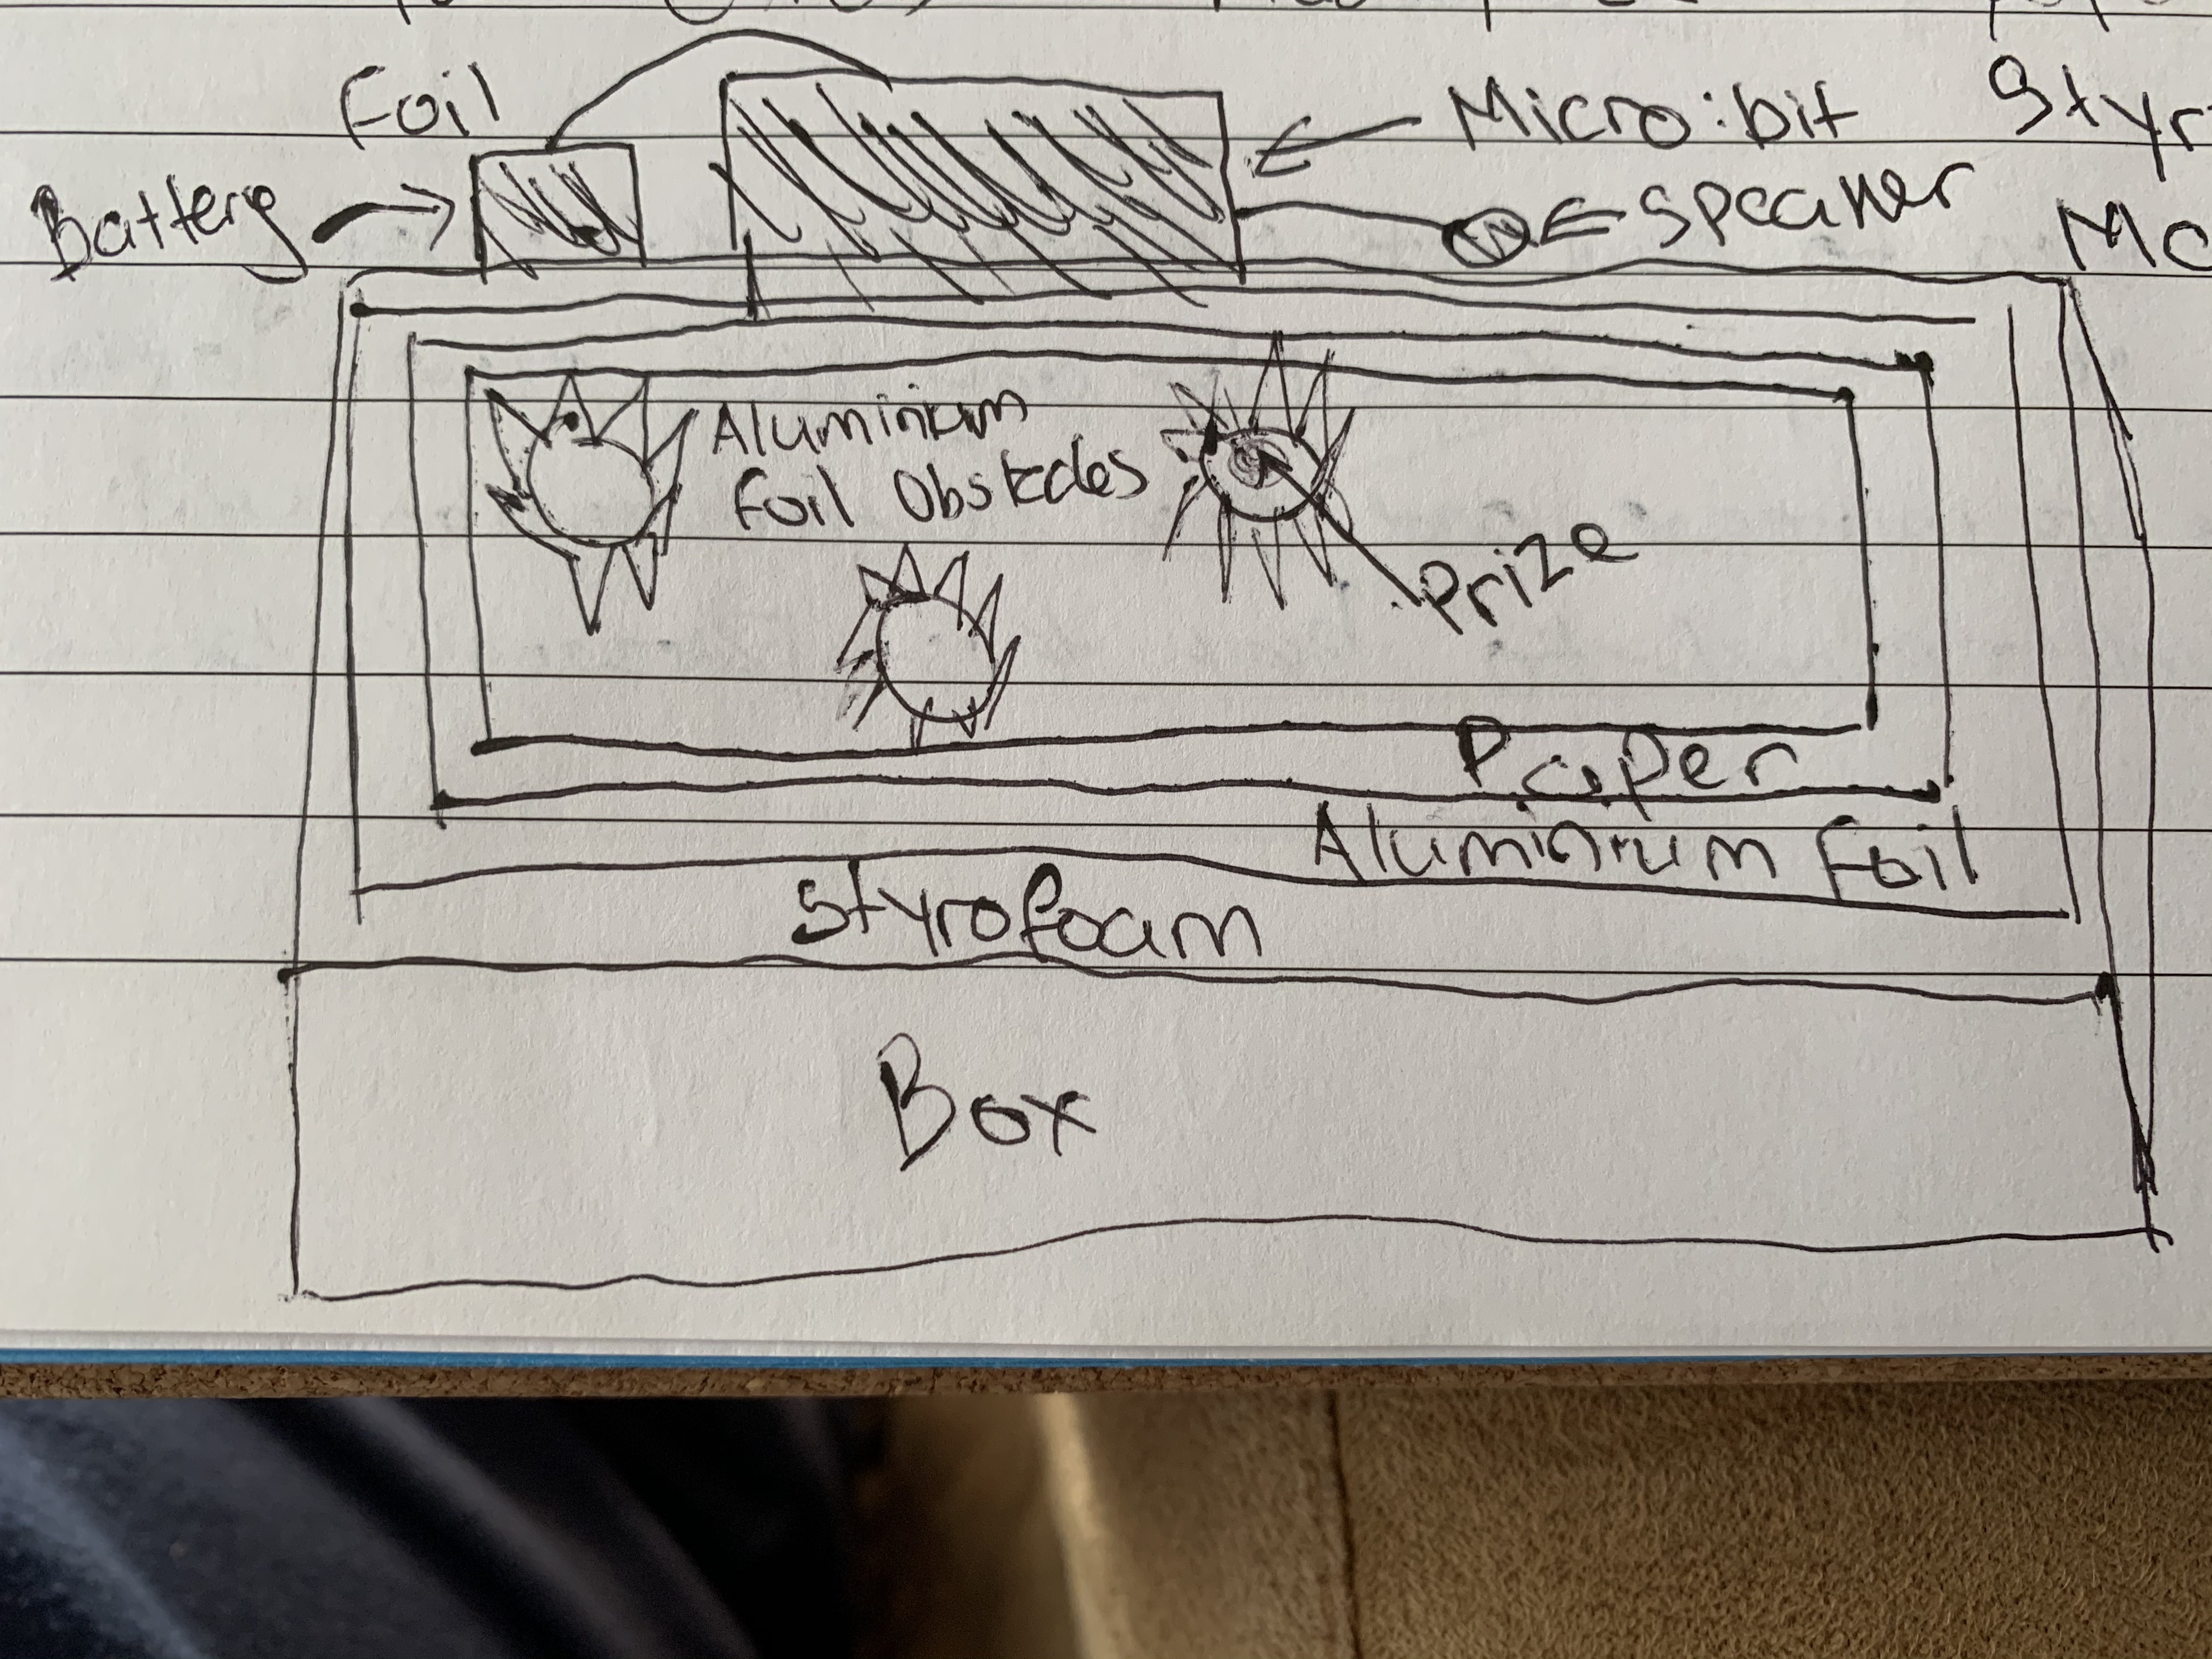 Foil
Micro:bit
Battery
Speaker
Aluminium
Foil Obstacles
Prize
Paper
Aluminium Foil
Styrofoam
Box